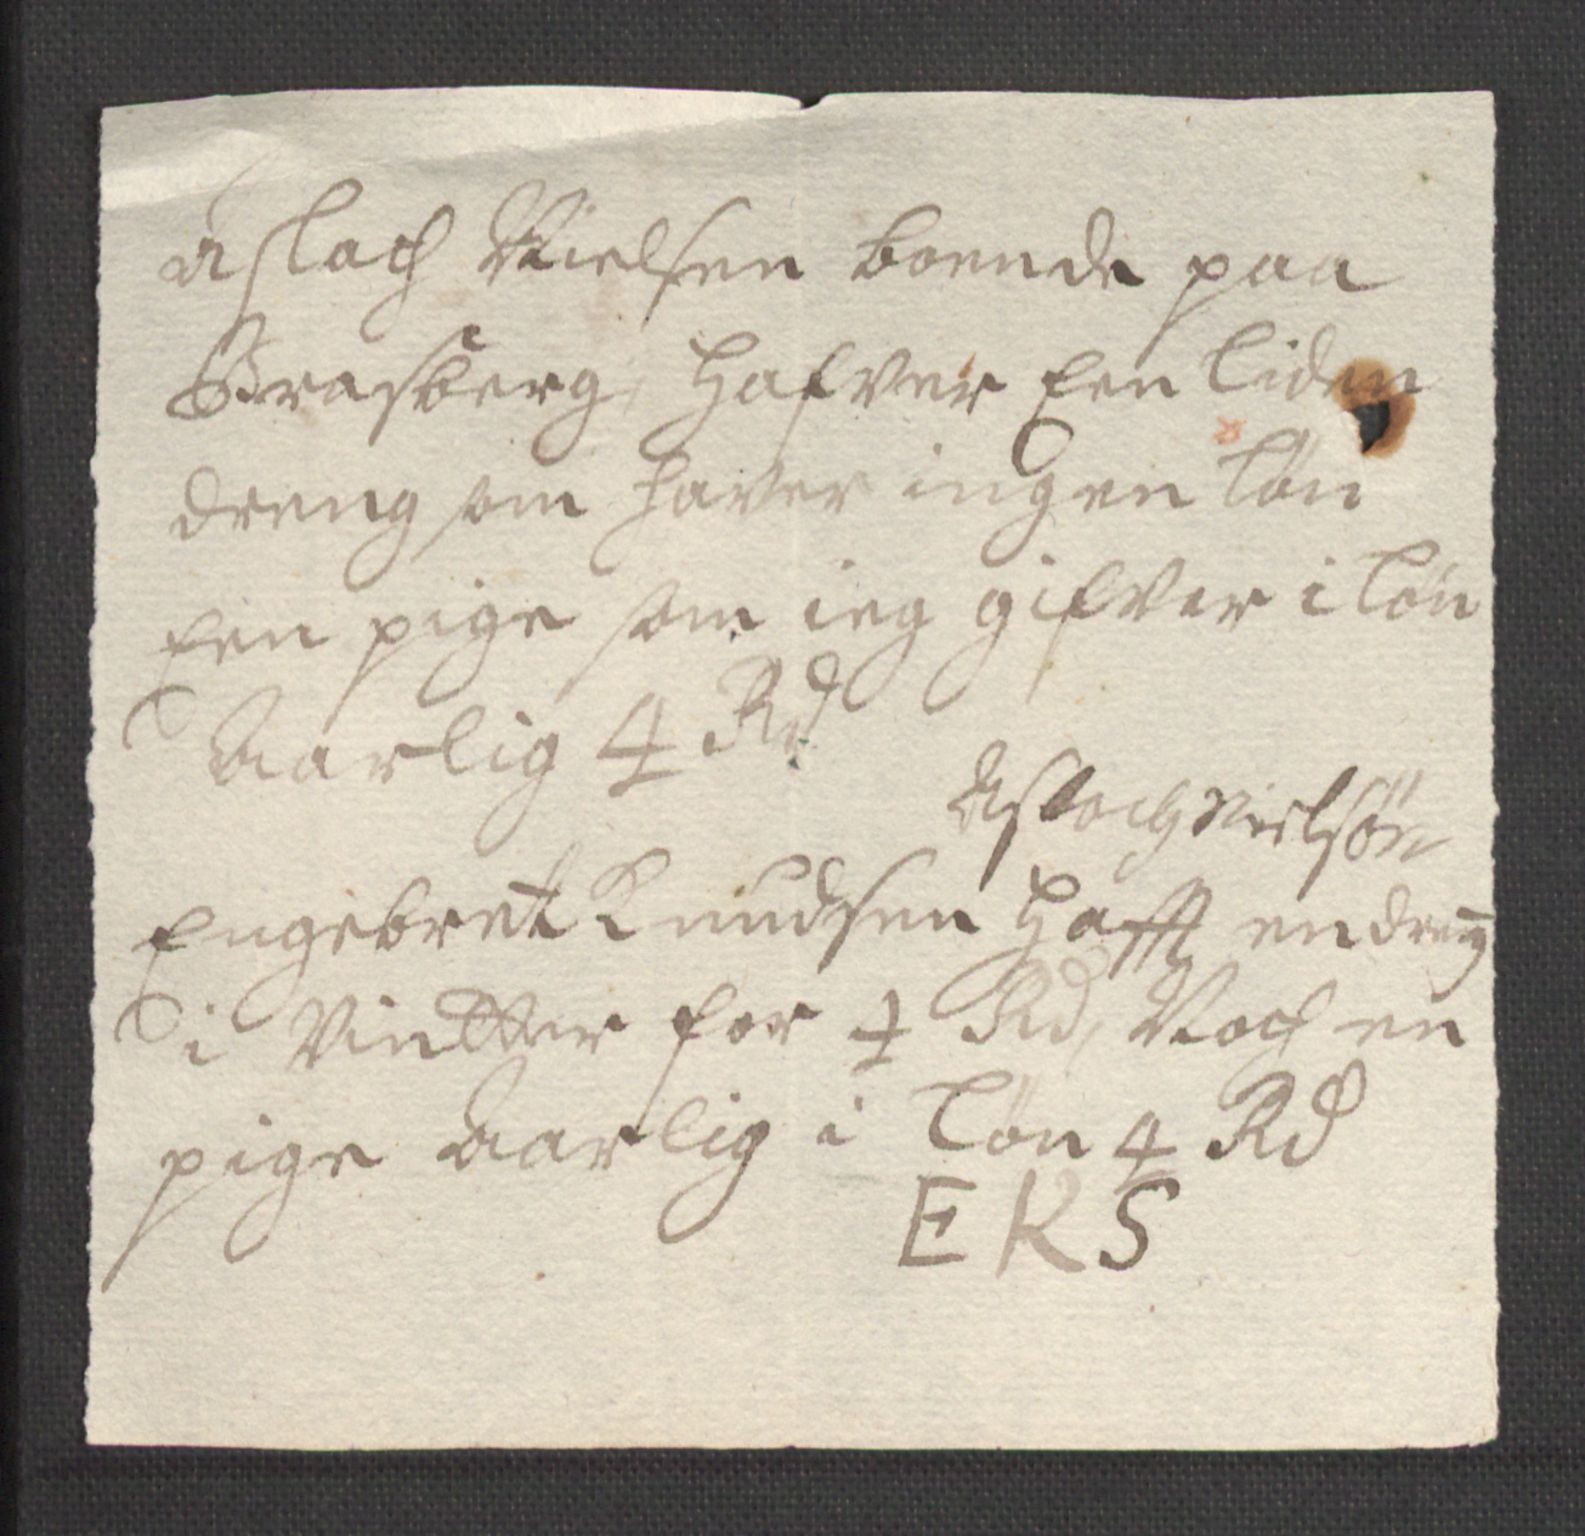 Aslach Nielsen boende paa
Brasberg, Hafver Een liden
dreng som haver ingen løn
Een pige som ieg gifver i løn
Aarlig 4 Rd
Aslach Nielsøn
Engebret Knudsen Hafft en dreng
i Vintter for 4 Rd, Noch en
pige Aarlig i løn 4 Rd
E K S